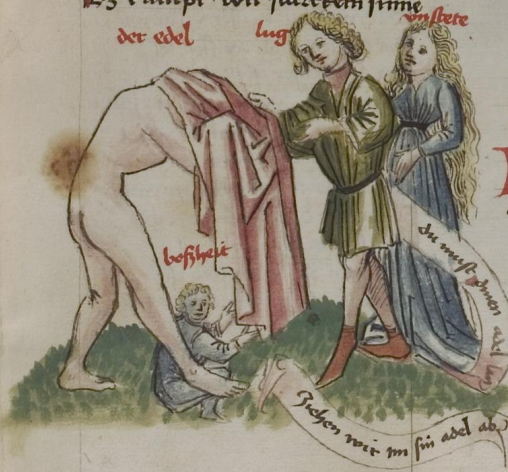 der edel
lug
vnstete
boßheit
du must
adel
Ziehen wir im sin adel ab